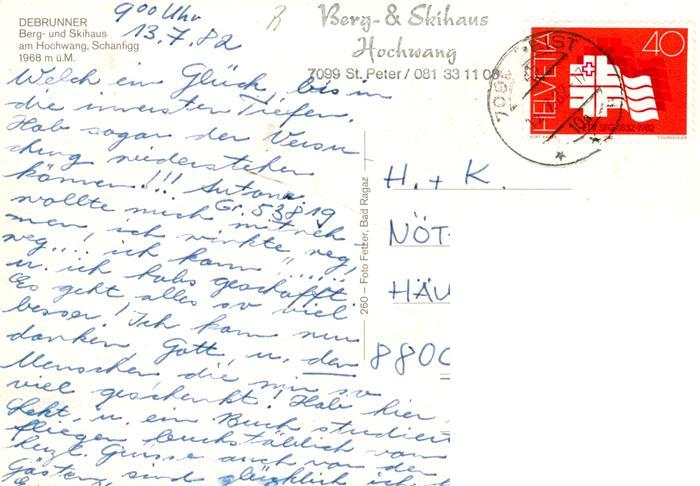 900 Uhr
13.7.82
DEBRUNNER
Berg- und Skihaus
am Hochwang, Schanfigg
1968 m ü.M.
Berg- & Skihaus
Hochwang
7099 St. Peter / 081 33 11 08
HELVETIA
40
SFG 1832-1982
Welch ein Glück, bis in
die innersten Tiefen.
Hab sogar der Versu
chung wiederstehen
können!!! Auton
Gr. 53819
wollte mich mit neh
men, ich winkte weg,
weg... ich kann......
u. ich habs geschafft.
Es geht alles so viel
besser! Ich kann nur
danken Gott, u. den
Menschen die mir so
viel geschenkt! Hab hier
u. ein Buch studiert
fliegen buchstäblich von
herzl. Grüsse auch von den
Gästen, sind glücklich ich
260 – Foto Fetzer, Bad Ragaz
H. + K.
NÖT
HÄU
880